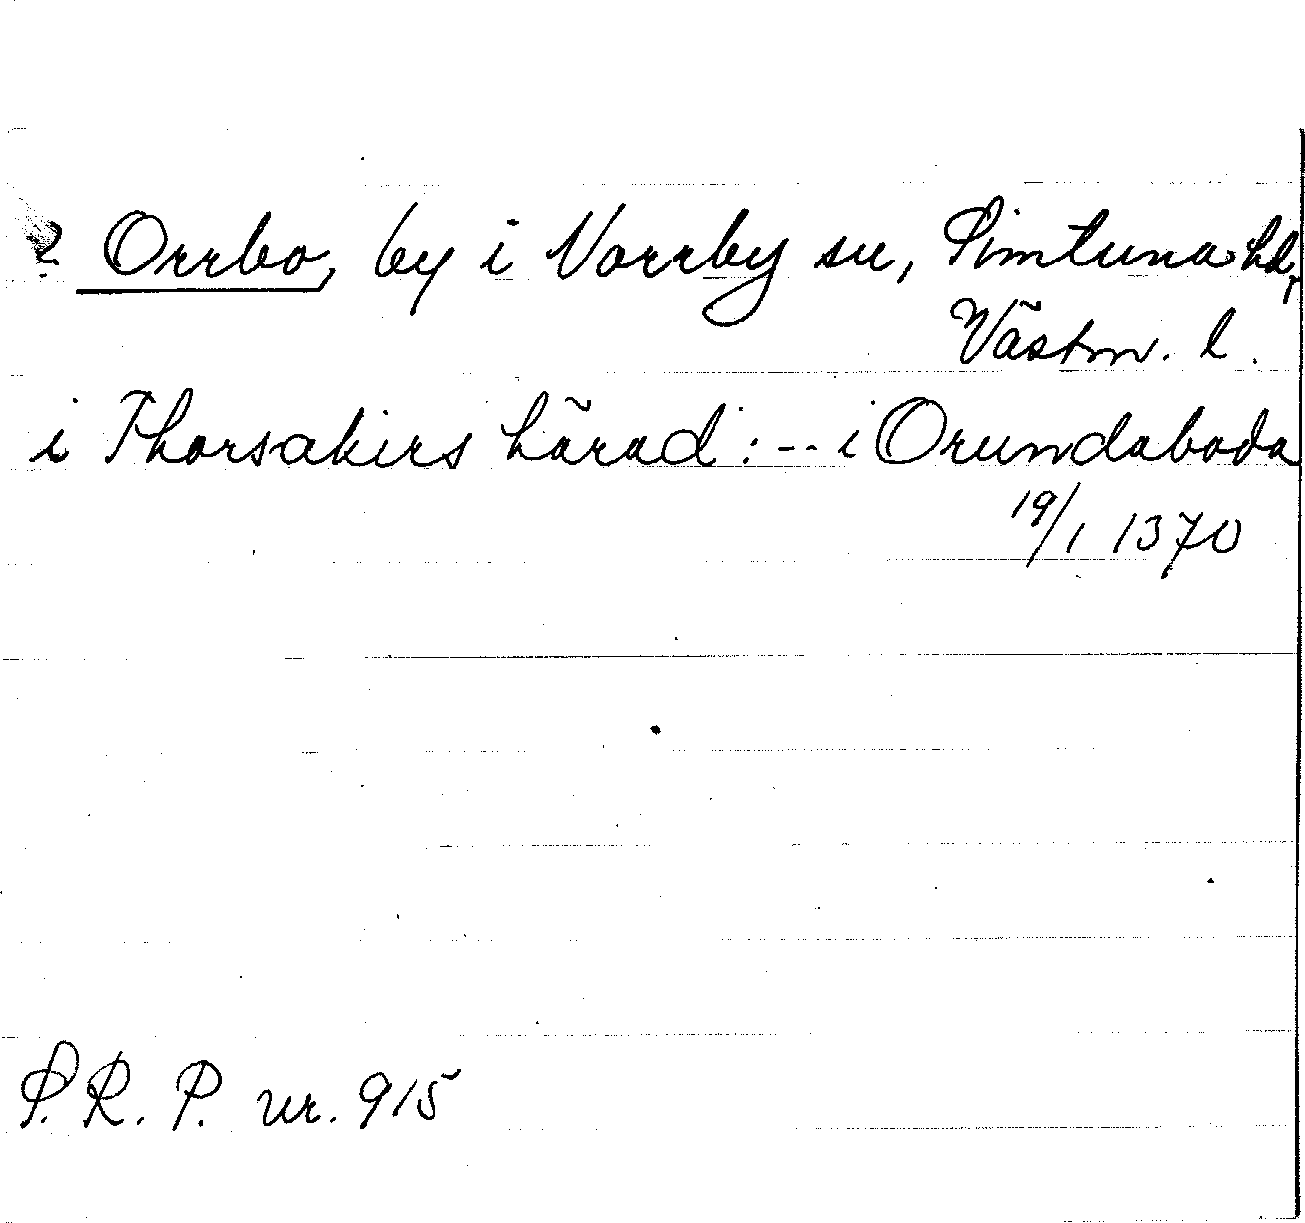 ? Orrbo, by i Norrby sn, Simtuna hd,
Västm. l.
i Thorsakirs härad: -- i Orundaboda
19/1 1370
S.R.P. nr. 915